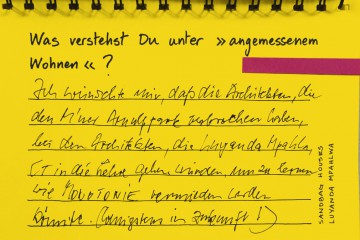 Was verstehst Du unter »angemessenem
Wohnen«?
Ich wünschte mir, daß die Architekten, die
den Wiener Arsenalpark verbrochen haben,
bei den Architekten, die Luyanda Mpahlwa,
CT in die Lehre gehen würden, um zu lernen
wie MONOTONIE vermieden werden
könnte. (Wenigstens in Zukunft!)
SANDBAG HOUSES
LUYANDA MPAHLWA